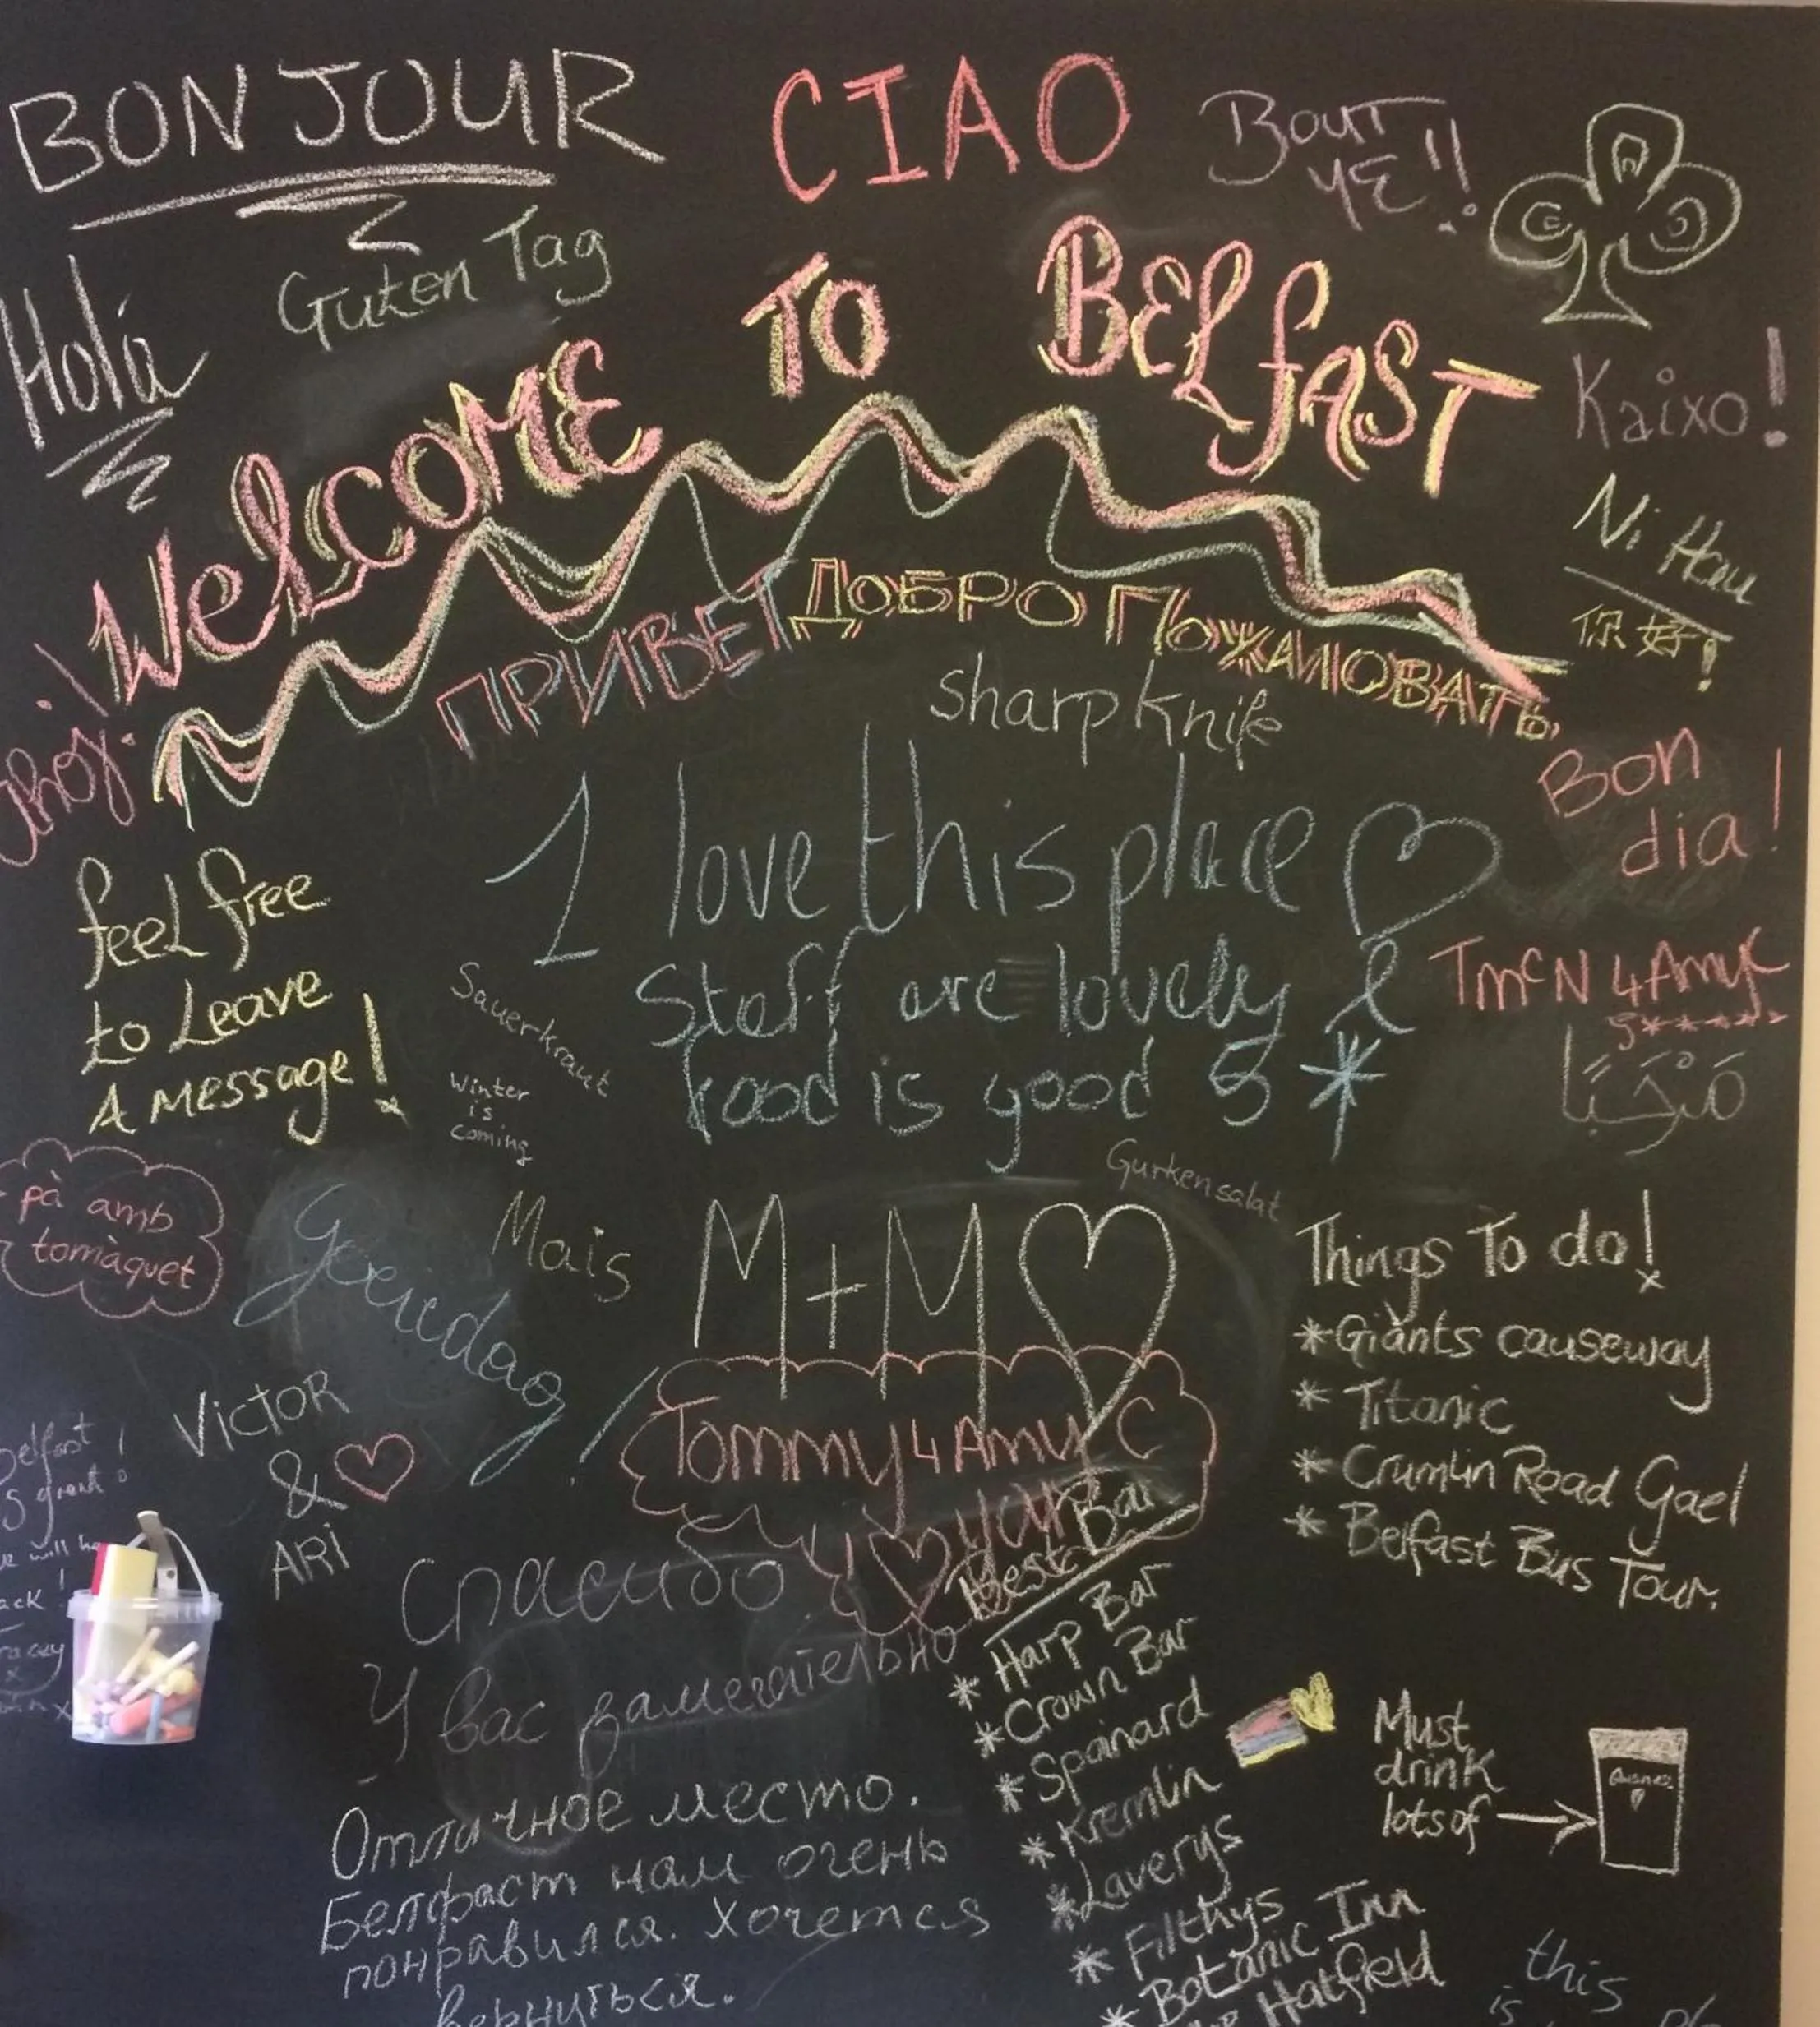 BONJOUR
CIAO
BOUT
YE!!
Guten Tag
Hola
WELCOME TO BELFAST
Kaixo!
Ni Hau
你好!
ПРИВЕТ ДОБРО ПОЖАЛОВАТЬ
sharp knife
Ahoj!
Bon
dia!
I love this place
Staff are lovely &
food is good 5*
feel free
to Leave
A MESSAGE!
TMcN 4 Amy C
5*****
Sauerkraut
Winter
is
coming
Gurkensalat
pà amb
tomàquet
Goeiedag!
Mais
M+M
Things To do!
*Giants causeway
* Titanic
* Crumlin Road Gael
* Belfast Bus Tour.
VICTOR
&
ARI
Tommy 4 Amy C
Belfast!
is great!
will be
back!
Tracey
x
Спасибо
У вас замечательно
Отличное место.
Белфаст нам очень
понравился. Хочется
вернуться.
Best Bar
* Harp Bar
*Crown Bar
*Spaniard
*Kremlin
*Laverys
* Filthys
* Botanic Inn
Hatfield
Must
drink
lots of
this
is